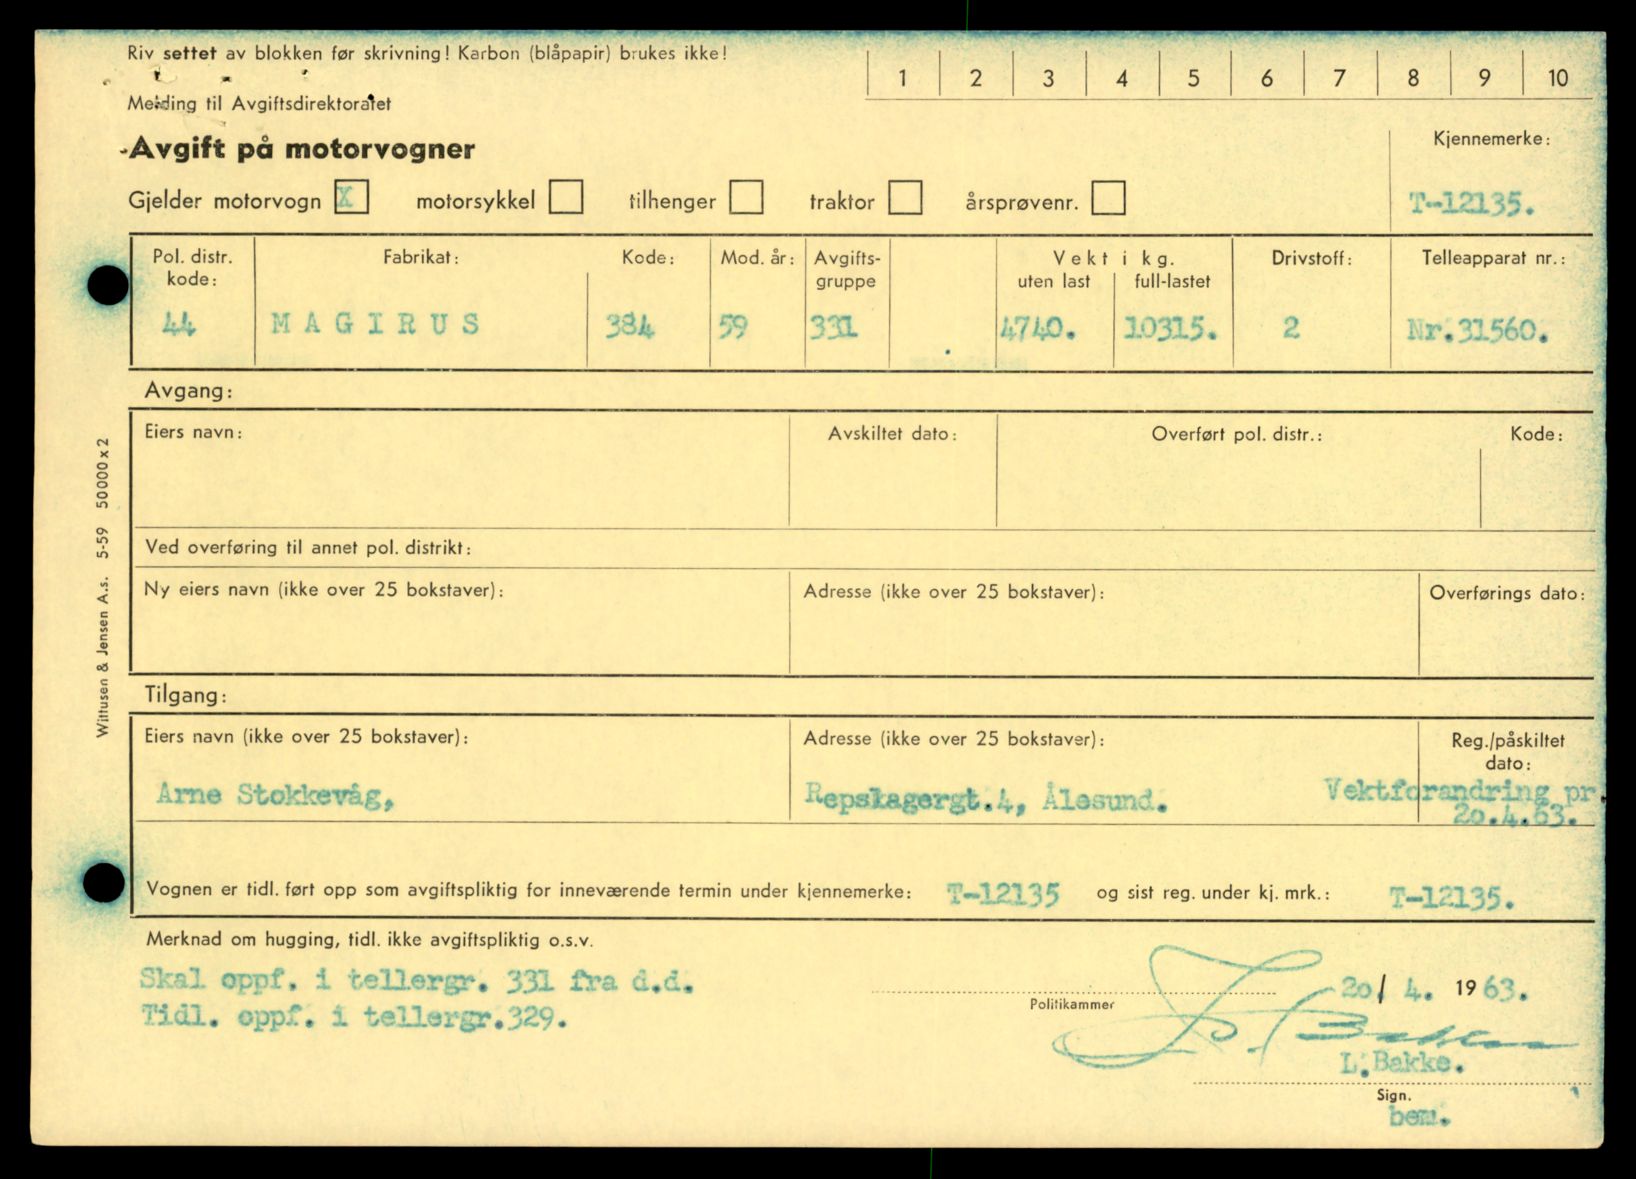 Riv settet av blokken før skrivning! Karbon (blåpapir) brukes ikke!
1 2 3 4 5 6 7 8 9 10
Melding til Avgiftsdirektoratet
Avgift på motorvogner
Kjennemerke:
Gjelder motorvogn X motorsykkel tilhenger traktor årsprøvenr.
T-12135.
Pol. distr. kode:
Fabrikat:
Kode:
Mod. år:
Avgifts-
gruppe
Vekt i kg.
uten last
full-lastet
Drivstoff:
Telleapparat nr.:
44 MAGIRUS 384 59 331 4740. 10315. 2 Nr.31560.
Avgang:
Eiers navn:
Avskiltet dato:
Overført pol. distr.:
Kode:
Ved overføring til annet pol. distrikt:
Ny eiers navn (ikke over 25 bokstaver):
Adresse (ikke over 25 bokstaver):
Overførings dato:
Tilgang:
Eiers navn (ikke over 25 bokstaver):
Adresse (ikke over 25 bokstaver):
Reg./påskiltet
dato:
Arne Stokkevåg,
Repslagergt.4, Ålesund.
Vektforandring pr.
20.4.63.
Vognen er tidl. ført opp som avgiftspliktig for inneværende termin under kjennemerke: T-12135 og sist reg. under kj. mrk.: T-12135.
Merknad om hugging, tidl. ikke avgiftspliktig o.s.v.
Skal oppf. i tellergr. 331 fra d.d.
Tidl. oppf. i tellergr.329.
20/ 4. 1963.
Politikammer
L.Bakke.
Sign.
bem.
Wittusen & Jensen A.s. 5-59 50000x2